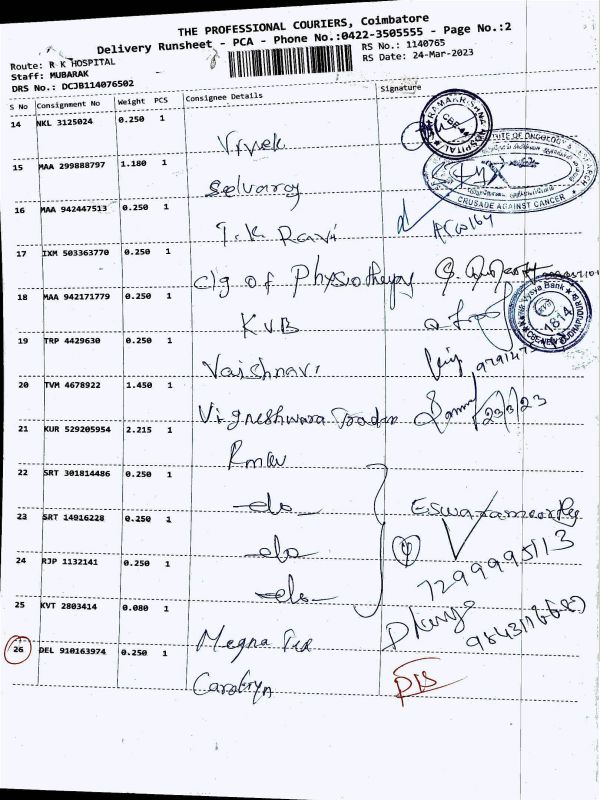 THE PROFESSIONAL COURIERS, Coimbatore
Delivery Runsheet - PCA - Phone No.:0422-3505555 - Page No.:2
Route: R K HOSPITAL
RS No.: 1140765
Staff: MUBARAK
RS Date: 24-Mar-2023
DRS No.: DCJB114076502
S No Consignment No Weight PCS Consignee Details Signature
14 NKL 3125024 0.250 1
Vivek
15 MAA 299888797 1.180 1
Selvaraj
16 MAA 942447513 0.250 1
T.K Ravi
17 IXM 503363770 0.250 1
clg of Physiotherapy
18 MAA 942171779 0.250 1
K.V.B
19 TRP 4429630 0.250 1
Vaishnavi
20 TVM 4678922 1.450 1
Vigneshwara Trader 23/3/23
21 KUR 529205954 2.215 1
22 SRT 301814486 0.250 1
do Eswaramoorthy
23 SRT 14916228 0.250 1
do
24 RJP 1132141 0.250 1
7299995113
do
25 KVT 2803414 0.080 1
Megna Tex
26 DEL 910163974 0.250 1
SRI RAMAKRISHNA HOSPITAL
CBE-44
INSTITUTE OF ONCOLOGY & RESEARCH
CRUSADE AGAINST CANCER
Vysya Bank
1814